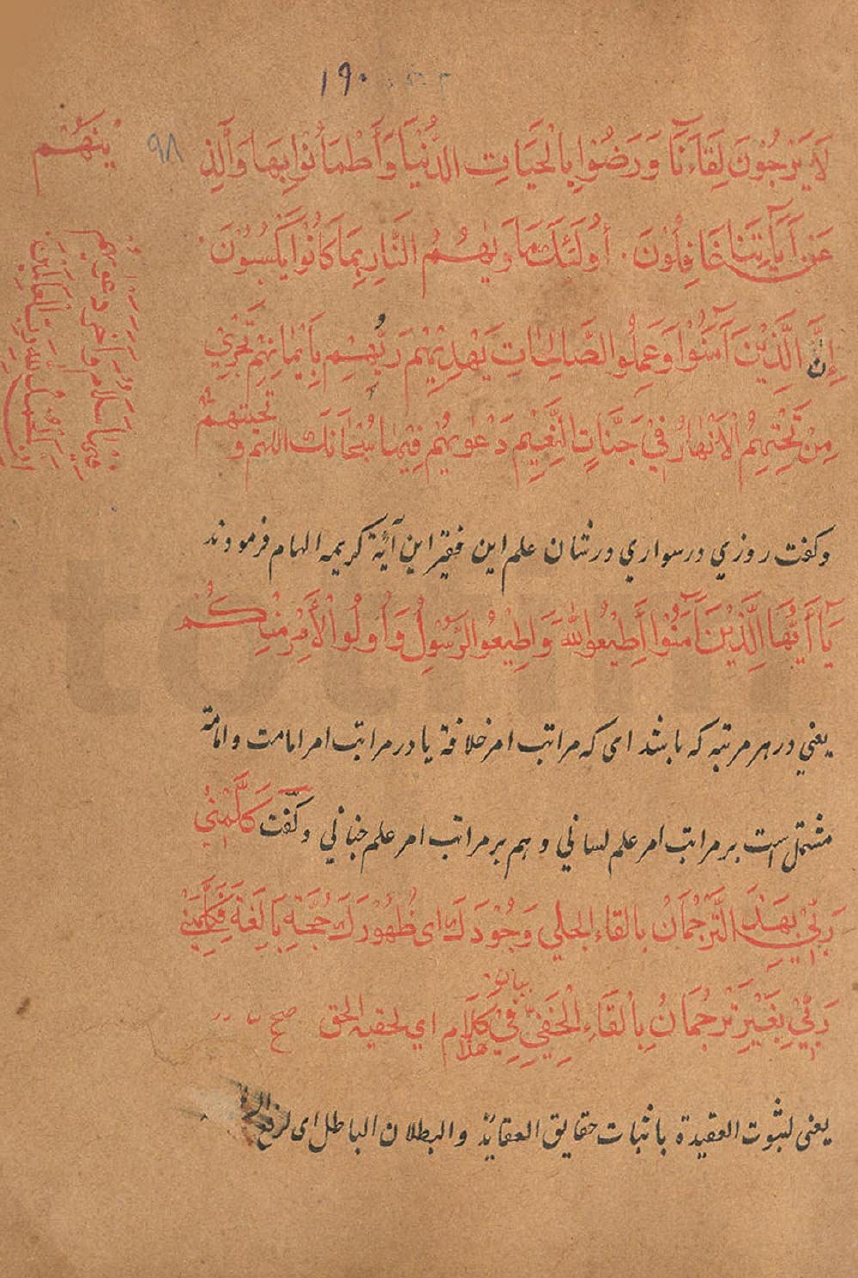 ۱۹۰
۹۸
لَا يَرْجُوْنَ لِقَاءَنَا وَرَضُوْا بِالْحَيَاتِ الدُّنْيَا وَأَطْمَأَنُوْا بِهَا وَالَّذِ يْنَهُمْ
عَنْ آيَاتِنَا غَافِلُوْنَ۰ أُولَئِكَ مَاوَيهُمُ النَّارِ بِمَا كَانُوْا يَكْسِبُوْنَ۰
إِنَّ الَّذِيْنَ آمَنُوْا وَعَمِلُوا الصَّالِحَاتِ يَهْدِيْهِمْ رَبُّهِمْ بِاَيْمَانِهِمْ تَجْرِيْ
مِنْ تَحْتِهِمُ الْاَنْهَارُ فِيْ جَنَّاتِ النَّعِيْمِ دَعْوَيهُمْ فِيْهَا سُبْحَانَكَ اللهم و تحيتهم
فيها سلام وآخر دعويهم
ان الحمد لله رب العالمين
وگفت روزي در سواري در شان علم اين فقير اين آية كريمه الهام فرمودند
يَآ أَيُّهَا الَّذِيْنَ آمَنُوْا أَطِيْعُوا اللهَ وَاَطِيْعُوا الرَّسُوْلُ وَاُولُوْا الْأَمْرِ مِنْكُمْ
يعني در هر مرتبه كه باشد اى كه مراتب امر خلافة يا در مراتب امر امامت و امامة
مشتمل است بر مراتب امر علم لساني و هم بر مراتب امر علم جناني وگفت كَلَّمَنِيْ
رَبِّيْ بِهٰذَ التَّرْجُمَانُ بالقاء الجلي وَجُوْدَكَ اى ظُهُوْرَكَ حُجَّةِ بَالِغَةَ فَكَلَّمَنِيْ
رَبِّيْ بِغَيْرِ تَرْجُمَانُ بِالْقَاءِ الْخَفِيِّ فِيْ كَلَام هذا اي لحقيه الحق صح
يعنى لثبوت العقيدة باثبات حقايق العقايد والبطلان الباطل اى لرفع